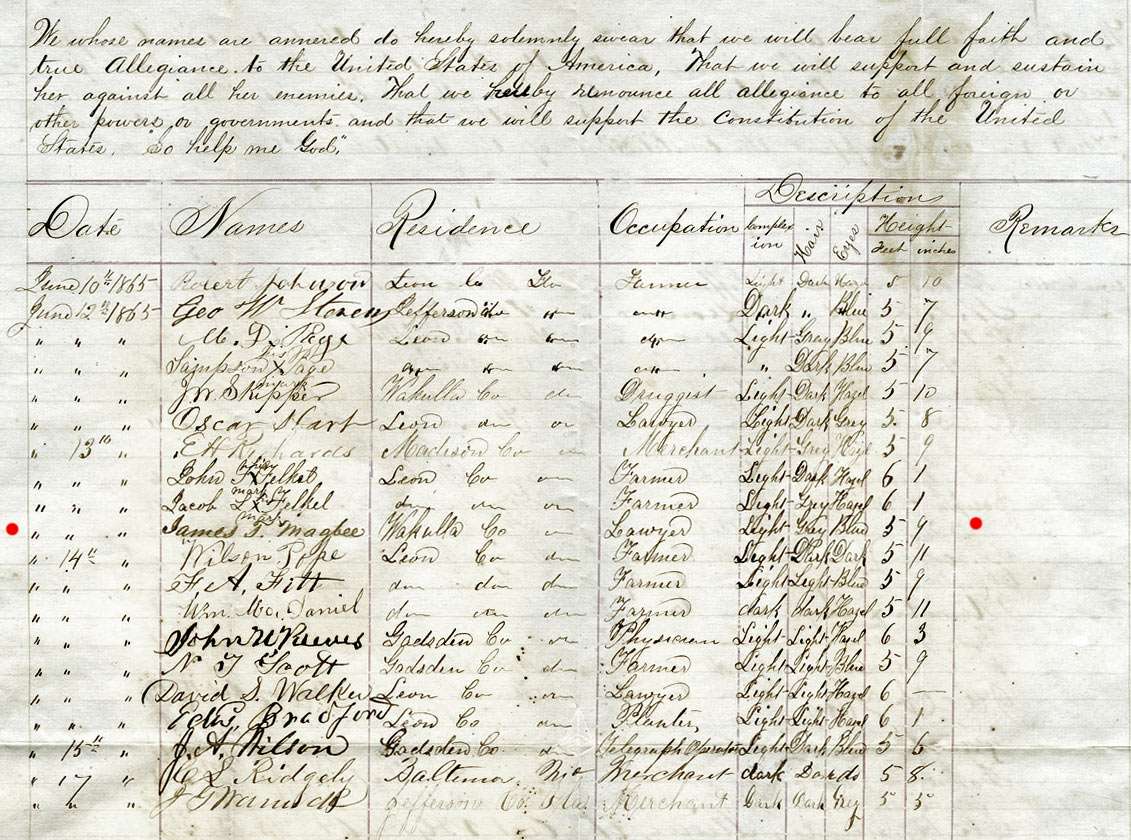 We whose names are annexed do hereby solemnly swear that we will bear full faith and
true Allegiance to the United States of America, That we will support and sustain
her against all her enemies. That we hereby renounce all allegiance to all foreign or
other powers or governments, and that we will support the Constitution of the United
States. So help me God."
Description
Date Names Residence Occupation Complexion Hair Eyes Height Feet inches Remarks
June 10th 1865 Robert Johnson Leon Co Flo Farmer Light Dark Haze 5 10
June 12th 1865 Geo W Stevens Jefferson Co " " Dark " Blue 5 7
" " " M. D. Page Leon " " " Light Gray Blue 5 9
" " " Sampson his X mark Page " " " " " Dark Blue 5 7
" " " J W Skipper Wakulla Co do Druggist Light Dark Hazel 5 10
" " " Oscar Hart Leon do do Lawyer Light Dark Grey 5 8
" 13th " E H Richards Madison Co do Merchant Light Grey 5 9
" " " John his X mark Felkel Leon Co do Farmer Light Dark Hazel 6 1
" " " Jacob his X mark Felkel do do do Farmer Light Grey Hazel 6 1
" " " James T. Magbee Wakulla Co do Lawyer Light Gray Blue 5 9
" 14th " Wilson Pope Leon Co do Farmer Light Dark Dark 5 11
" " " F. A. Fitt do do do Farmer Light Light Blue 5 9
" " " Wm. McDaniel do do do Farmer dark dark Hazel 5 11
" " " John W Reeves Gadsden Co do Physician Light Light Hazel 6 3
" " " N. T Scott Gadsden Co do Farmer Light Light Blue 5 9
" " " David S. Walker Leon Co do Lawyer Light Light Hazel 6 —
" " " Edw. Bradford Leon Co do Planter Light Light Hazel 6 1
" 15th " J. A. Wilson Gadsden Co do Telegraph Operator Light Dark Blue 5 6
" 17 " C L Ridgely Baltimore Merchant dark Dar do 5 8
" " " Jefferson Co. Merchant Dark Dark Grey 5 5